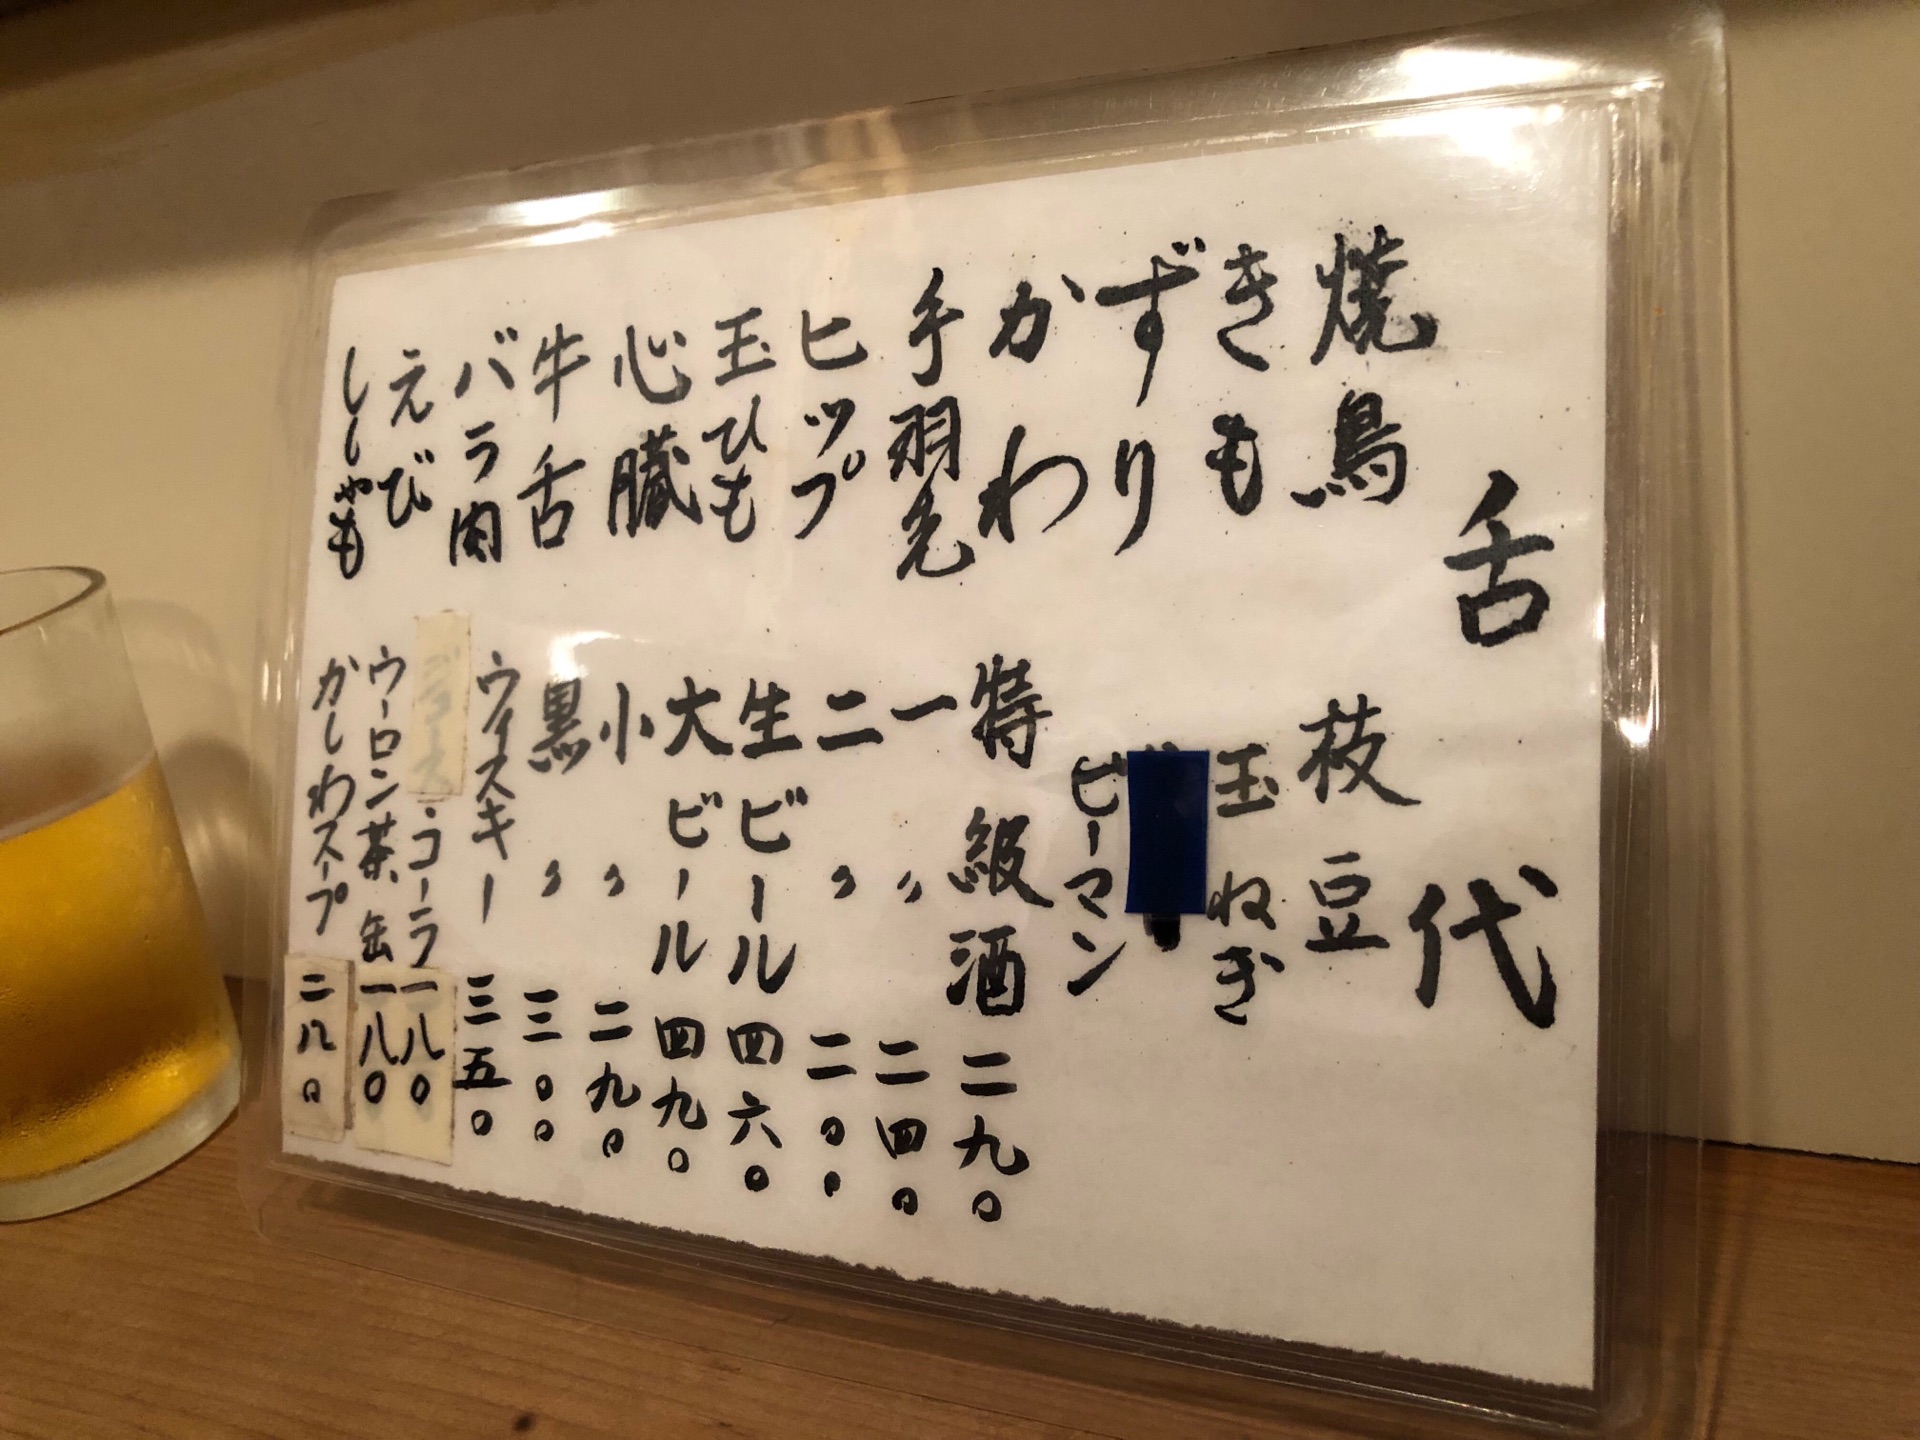 舌代
焼鳥
きも
ずり
かわ
手羽先
ヒップ
玉ひも
心臓
牛舌
バラ肉
えび
ししゃも
枝豆
玉ねぎ
ピーマン
特級酒 二九〇
一 〃 二四〇
二 〃 二〇〇
生ビール 四六〇
大ビール 四九〇
小 〃 二九〇
黒 〃 三〇〇
ウイスキー 三五〇
ジュース・コーラ 一八〇
ウーロン茶、缶 一八〇
かしわスープ 二八〇